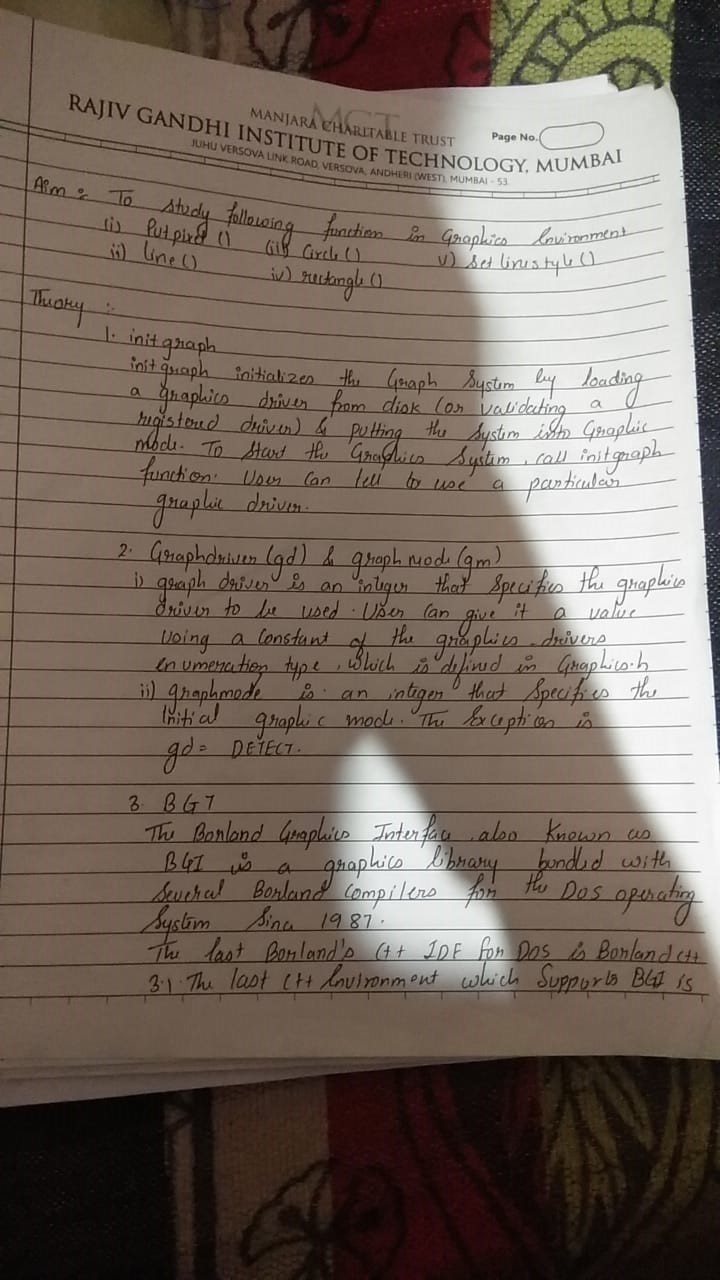 MCT
MANJARA CHARITABLE TRUST
Page No.
RAJIV GANDHI INSTITUTE OF TECHNOLOGY, MUMBAI
JUHU VERSOVA LINK ROAD, VERSOVA, ANDHERI (WEST), MUMBAI - 53.
Aim : To study following function in Graphics Environment
(i) Putpixel () (iii) Circle () v) Set linestyle ()
ii) line () iv) rectangle ()
Theory :-
1. initgraph
initgraph initializes the Graph System by loading
a graphics driver from disk (or validating a
registered driver) & putting the system into Graphic
mode. To Start the Graphics System, call initgraph
function. User can tell to use a particular
graphic driver.
2. Graphdriver (gd) & graph mode (gm)
i) graph driver is an integer that Specifies the graphics
driver to be used. User can give it a value
using a constant of the graphics-drivers
enumeration type, which is defined in Graphics.h
ii) graphmode is an integer that Specifies the
initial graphic mode. The Exception is
gd = DETECT.
3. BGI
The Borland Graphics Interface, also Known as
BGI is a graphics library bundled with
Several Borland Compilers for the DOS operating
System Since 1987.
The last Borland's C++ IDE for DOS is Borland C++
3.1. The last C++ Environment which Supports BGI is